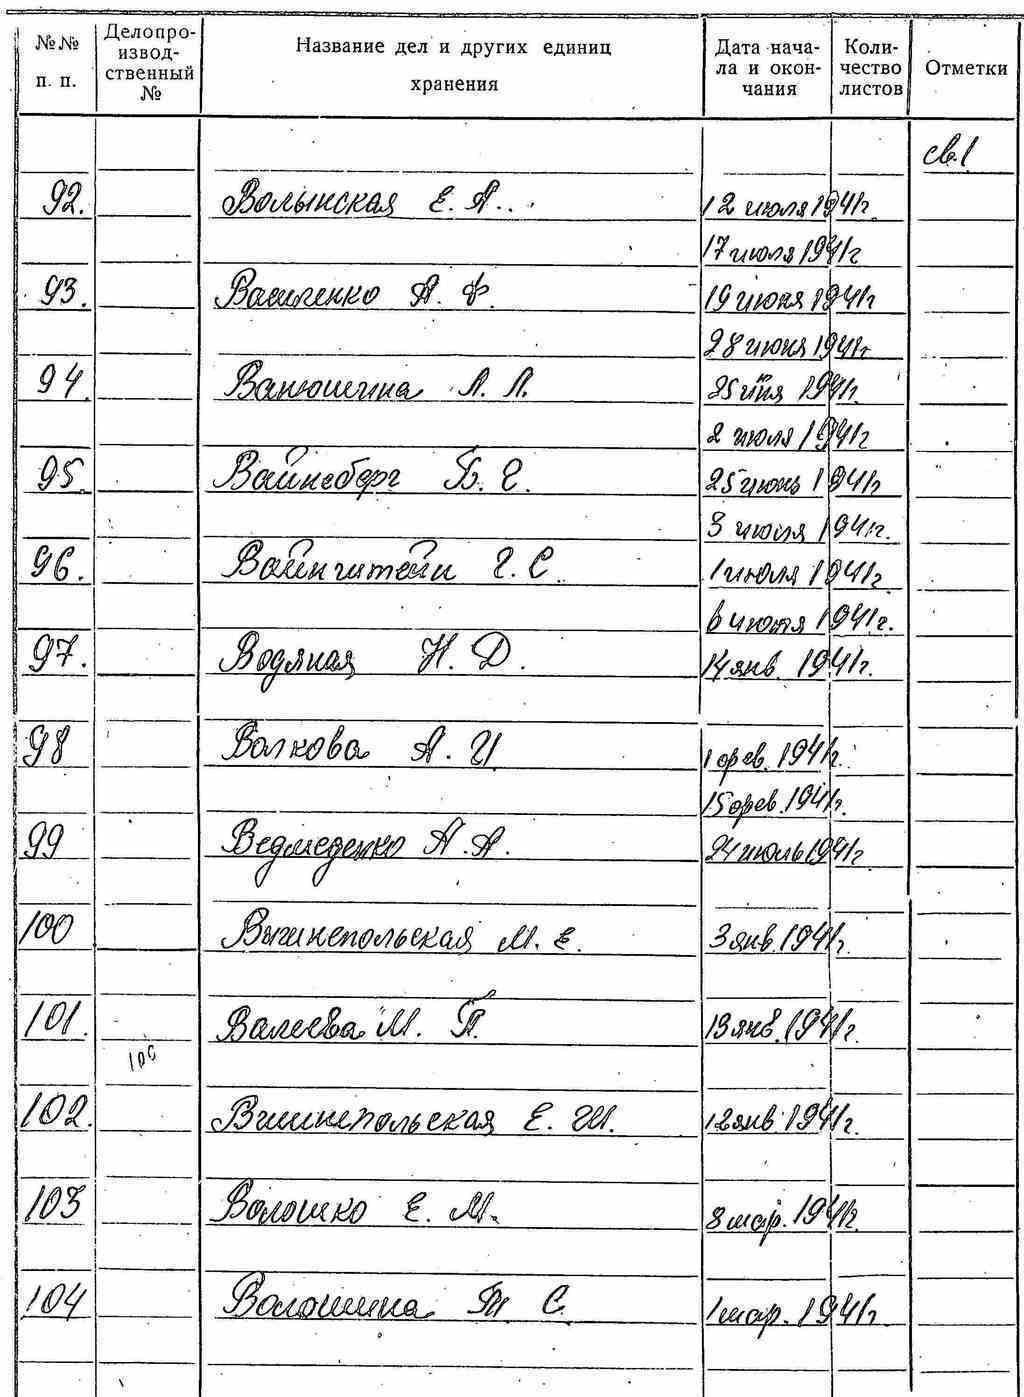 №№ п. п. Делопроизводственный № Название дел и других единиц хранения Дата начала и окончания Количество листов Отметки
св.1
92. Волынская Е. А. 12 июля 1941г.
17 июля 1941г
93. Василенко А. Ф. 19 июня 1941г
28 июня 1941г
94. Ванюшина Л. Л. 25 1941г.
2 июля 1941г
95. Вайнсберг Б. Е. 25 июнь 1941г
3 июля 1941г.
96. Вайнштейн Г. С. 1 июля 1941г
6 1941г.
97. Водяная Н. Д. 14 янв. 1941г.
98 Волкова А. И 1 фев. 1941г.
15 фев. 1941г.
99 Ведмеденко А. А. 24 июль 1941г
100 М. Е. 3 янв. 1941г.
101. Валеева М. П. 13 янв. 1941г.
100
102. Е. Ш. 12 янв. 1941г.
103 Волошко Е. М. 8 мар. 1941г.
104 Волошина С. 1 мар. 1941г.